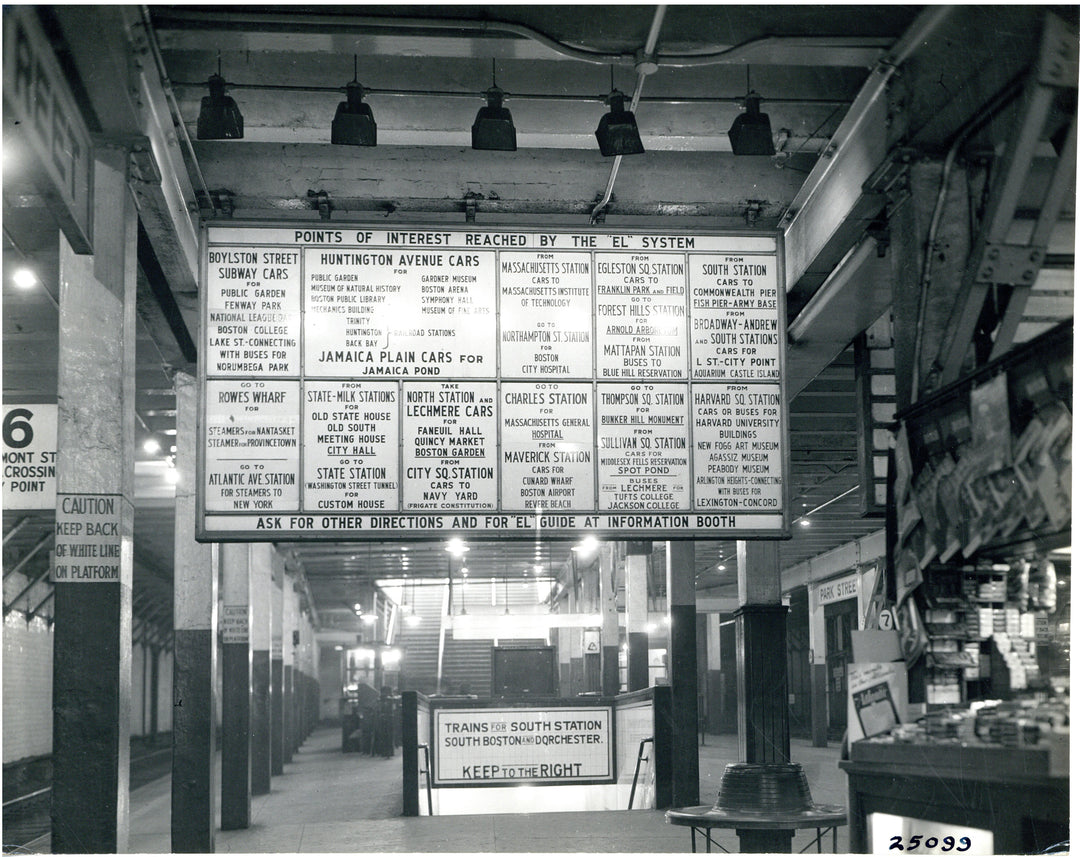 REET
POINTS OF INTEREST REACHED BY THE "EL" SYSTEM
BOYLSTON STREET
SUBWAY CARS
FOR
PUBLIC GARDEN
FENWAY PARK
NATIONAL LEAGUE
BOSTON COLLEGE
LAKE ST.-CONNECTING
WITH BUSES FOR
NORUMBEGA PARK
HUNTINGTON AVENUE CARS
FOR
PUBLIC GARDEN
MUSEUM OF NATURAL HISTORY
BOSTON PUBLIC LIBRARY
MECHANICS BUILDING
GARDNER MUSEUM
BOSTON ARENA
SYMPHONY HALL
MUSEUM OF FINE ARTS
TRINITY
HUNTINGTON
BACK BAY
RAILROAD STATIONS
JAMAICA PLAIN CARS FOR
JAMAICA POND
FROM
MASSACHUSETTS STATION
CARS TO
MASSACHUSETTS INSTITUTE
OF TECHNOLOGY
GO TO
NORTHAMPTON ST. STATION
FOR
BOSTON
CITY HOSPITAL
FROM
EGLESTON SQ. STATION
CARS TO
FRANKLIN PARK AND FIELD
GO TO
FOREST HILLS STATION
FOR
ARNOLD ARBORETUM
FROM
MATTAPAN STATION
BUSES TO
BLUE HILL RESERVATION
FROM
SOUTH STATION
CARS TO
COMMONWEALTH PIER
FISH PIER-ARMY BASE
FROM
BROADWAY-ANDREW
AND SOUTH STATIONS
CARS FOR
L ST.-CITY POINT
AQUARIUM CASTLE ISLAND
GO TO
ROWES WHARF
FOR
STEAMERS FOR NANTASKET
STEAMER FOR PROVINCETOWN
GO TO
ATLANTIC AVE STATION
FOR STEAMERS TO
NEW YORK
FROM
STATE-MILK STATIONS
FOR
OLD STATE HOUSE
OLD SOUTH
MEETING HOUSE
CITY HALL
GO TO
STATE STATION
(WASHINGTON STREET TUNNEL)
FOR
CUSTOM HOUSE
TAKE
NORTH STATION AND
LECHMERE CARS
FOR
FANEUIL HALL
QUINCY MARKET
BOSTON GARDEN
FROM
CITY SQ. STATION
CARS TO
NAVY YARD
(FRIGATE CONSTITUTION)
GO TO
CHARLES STATION
FOR
MASSACHUSETTS GENERAL
HOSPITAL
FROM
MAVERICK STATION
CARS FOR
CUNARD WHARF
BOSTON AIRPORT
REVERE BEACH
GO TO
THOMPSON SQ. STATION
FOR
BUNKER HILL MONUMENT
FROM
SULLIVAN SQ. STATION
CARS FOR
MIDDLESEX FELLS RESERVATION
SPOT POND
BUSES
FROM LECHMERE FOR
TUFTS COLLEGE
JACKSON COLLEGE
FROM
HARVARD SQ. STATION
CARS OR BUSES FOR
HARVARD UNIVERSITY
BUILDINGS
NEW FOGG ART MUSEUM
AGASSIZ MUSEUM
PEABODY MUSEUM
ARLINGTON HEIGHTS-CONNECTING
WITH BUSES FOR
LEXINGTON-CONCORD
ASK FOR OTHER DIRECTIONS AND FOR "EL" GUIDE AT INFORMATION BOOTH
6
MONT ST
CROSSIN
POINT
CAUTION
KEEP BACK
OF WHITE LINE
ON PLATFORM
CAUTION
KEEP BACK
OF WHITE LINE
ON PLATFORM
PARK STREET
7
TRAINS FOR SOUTH STATION
SOUTH BOSTON AND DORCHESTER.
KEEP TO THE RIGHT
25099